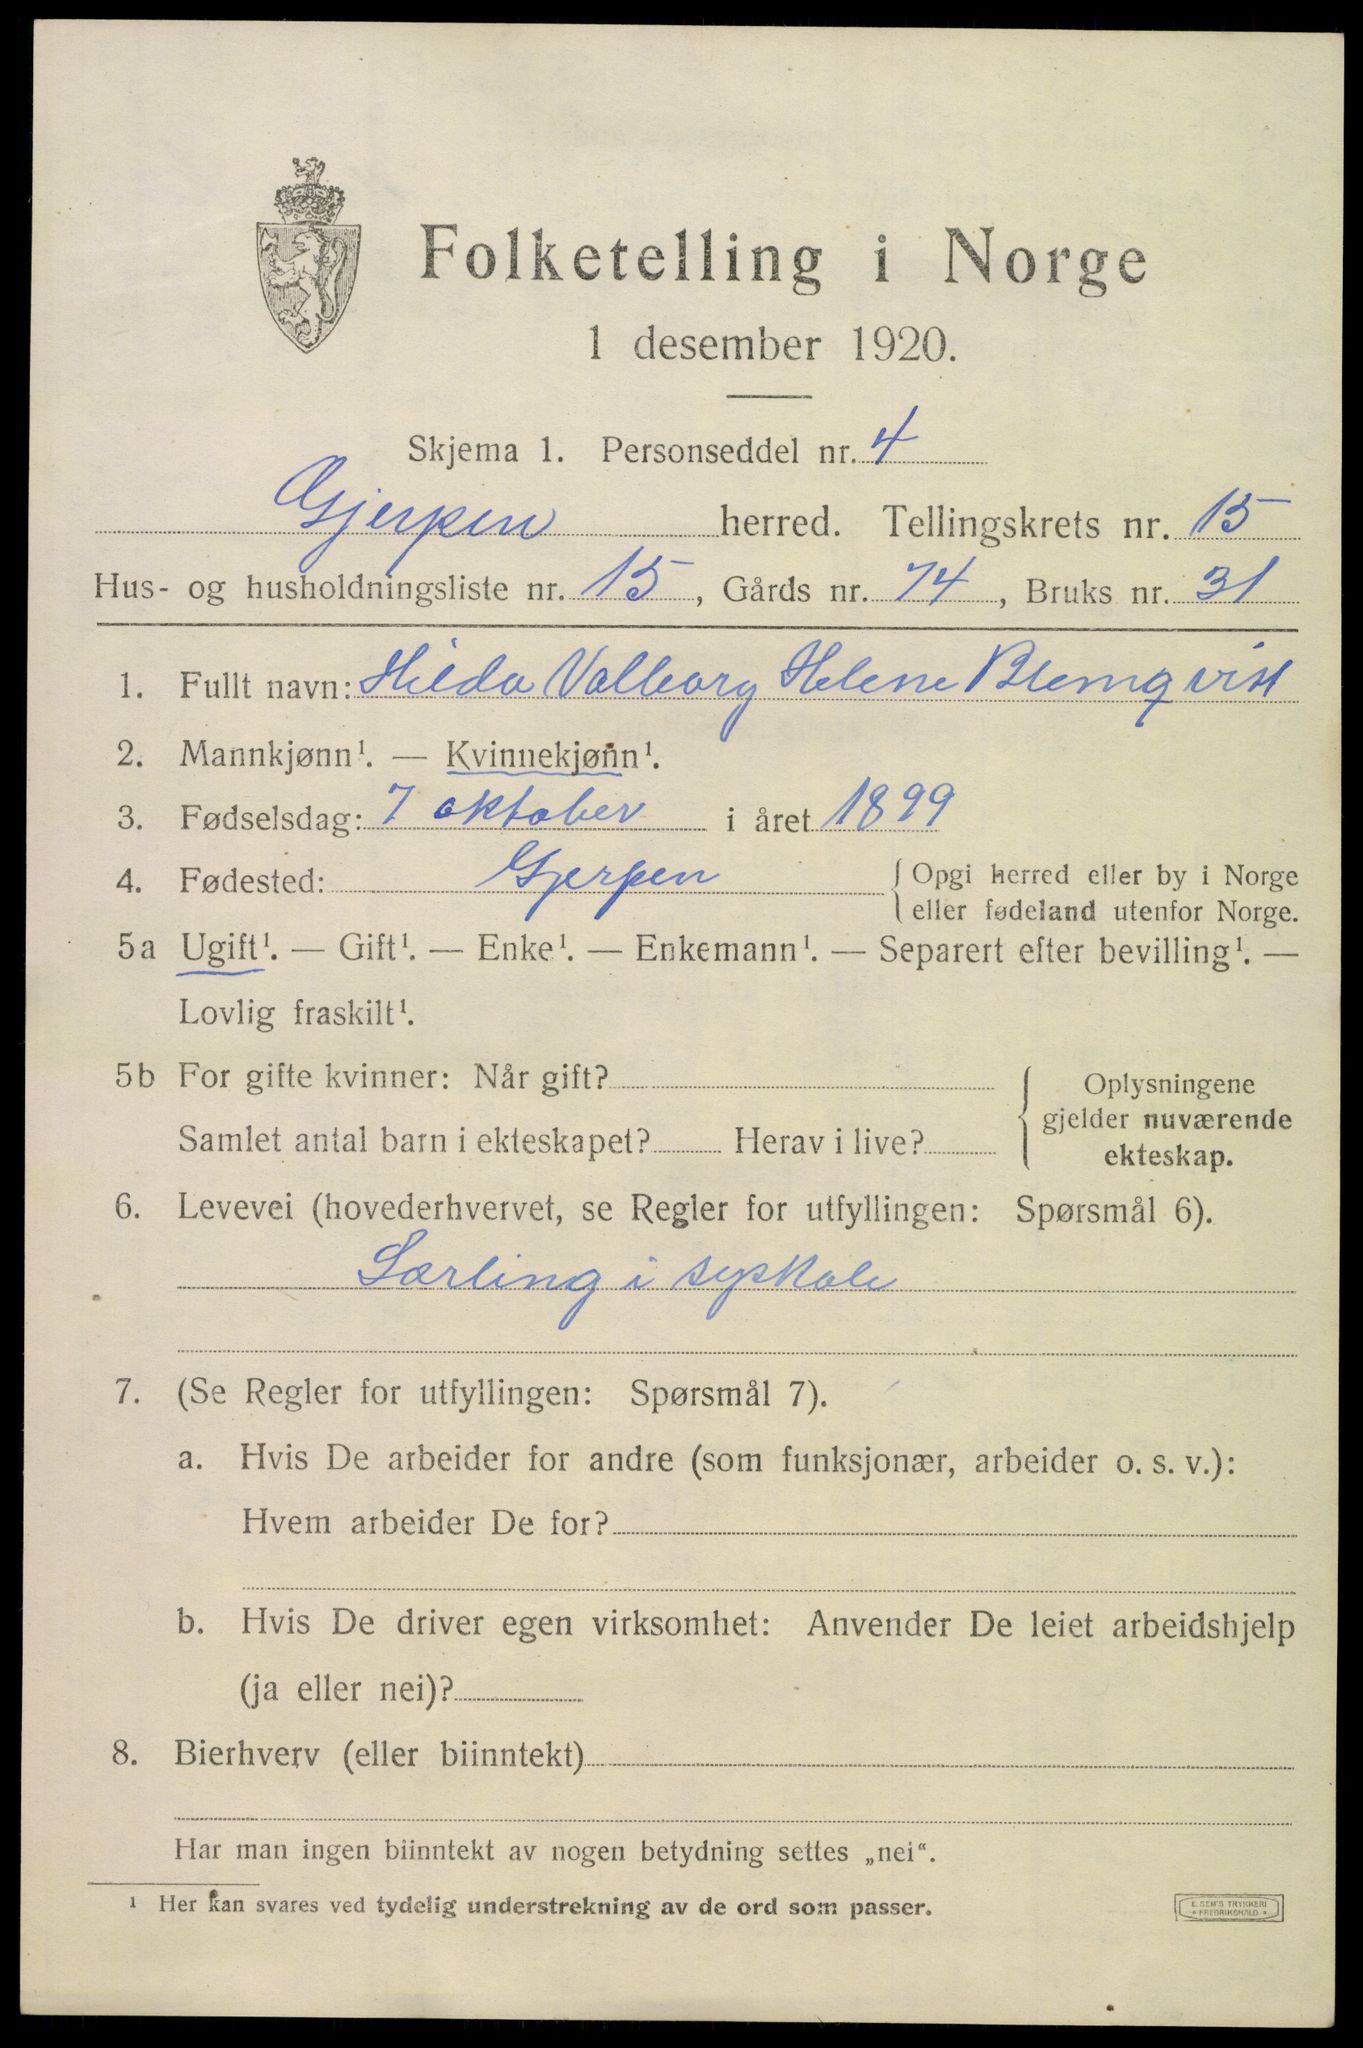 Folketelling i Norge
1 desember 1920.
Skjema 1. Personseddel nr. 4
Gjerpen herred. Tellingskrets nr. 15
Hus- og husholdningsliste nr. 15, Gårds nr. 74, Bruks nr. 31
1. Fullt navn: Hilda Valborg Helene Blomqvist
2. Mannkjønn¹. — Kvinnekjønn¹.
3. Fødselsdag: 7 oktober i året 1899
4. Fødested: Gjerpen { Opgi herred eller by i Norge
eller fødeland utenfor Norge.
5a Ugift¹. — Gift¹. — Enke¹. — Enkemann¹. — Separert efter bevilling¹. —
Lovlig fraskilt¹.
5b For gifte kvinner: Når gift?
Samlet antal barn i ekteskapet? Herav i live?
Oplysningene
gjelder nuværende
ekteskap.
6. Levevei (hovederhvervet, se Regler for utfyllingen: Spørsmål 6).
Lærling i syskole
7. (Se Regler for utfyllingen: Spørsmål 7).
a. Hvis De arbeider for andre (som funksjonær, arbeider o. s. v.):
Hvem arbeider De for?
b. Hvis De driver egen virksomhet: Anvender De leiet arbeidshjelp
(ja eller nei)?
8. Bierhverv (eller biinntekt)
Har man ingen biinntekt av nogen betydning settes „nei“.
¹ Her kan svares ved tydelig understrekning av de ord som passer.
E. SEM'S TRYKKERI
* FREDRIKSHALD *